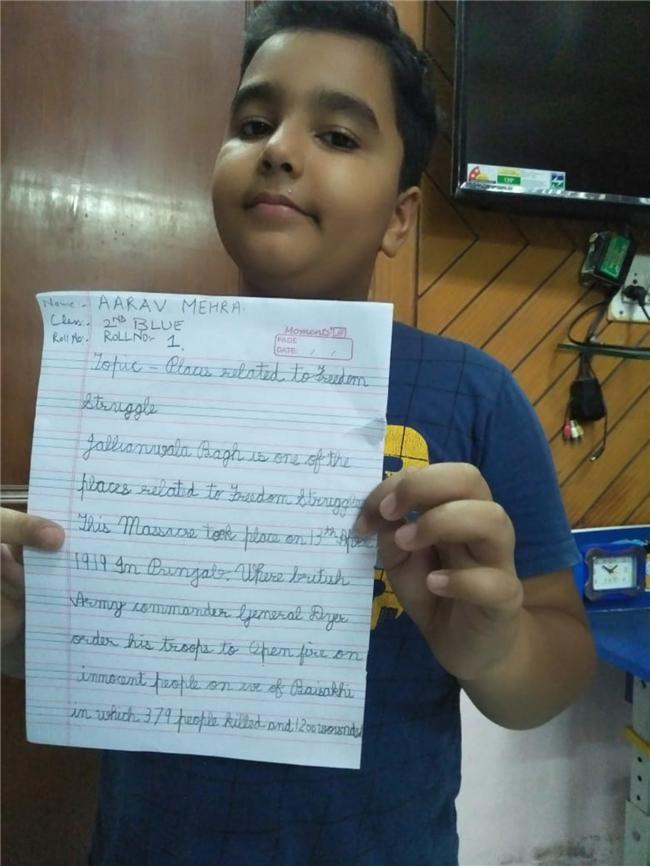 Name:- AARAV MEHRA
Class:- 2ND BLUE
Roll No:- ROLLNO:- 1.
Moments
PAGE
DATE: / /
Topic - Places related to Freedom
Struggle
Jallianwala Bagh is one of the
places related to Freedom Struggle
This Massacre took place on 13th April
1919 In Punjab. Where british
Army commander General Dyer
order his troops to Open fire on
innocent people on eve of Baisakhi
in which 379 people killed and 1200 wounded